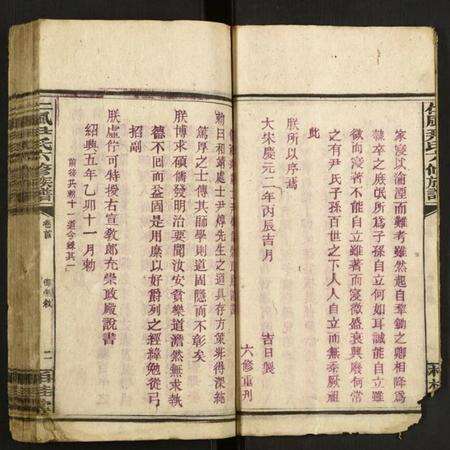 仁風尹氏六修族譜
家寖以淪湮而難考雖然起自羣鋤之卿相降為
隸卒之底氓所為子孫自立何如耳誠能自立雖
微而寖著不能自立雖著而寖微盛衰興廢何常
之有尹氏子孫百世之下人人自立而無忝厥祖
此
朕所以序焉
大宋慶元二年丙辰吉月 吉日製
六修重刊
勅曰和靖處士尹焞先生之道具存方策來得深純
篤厚之士傳其師學則道固隱而不彰矣
朕博求碩儒發明治要聞汝安貧樂道澹然無求執
德不回而益固是用縻以好爵列之經緯勉從弓
招副
朕虛佇可特授右宣教郎充崇政殿說書
紹興五年乙卯十一月勅
仁風尹氏六修族譜
卷首